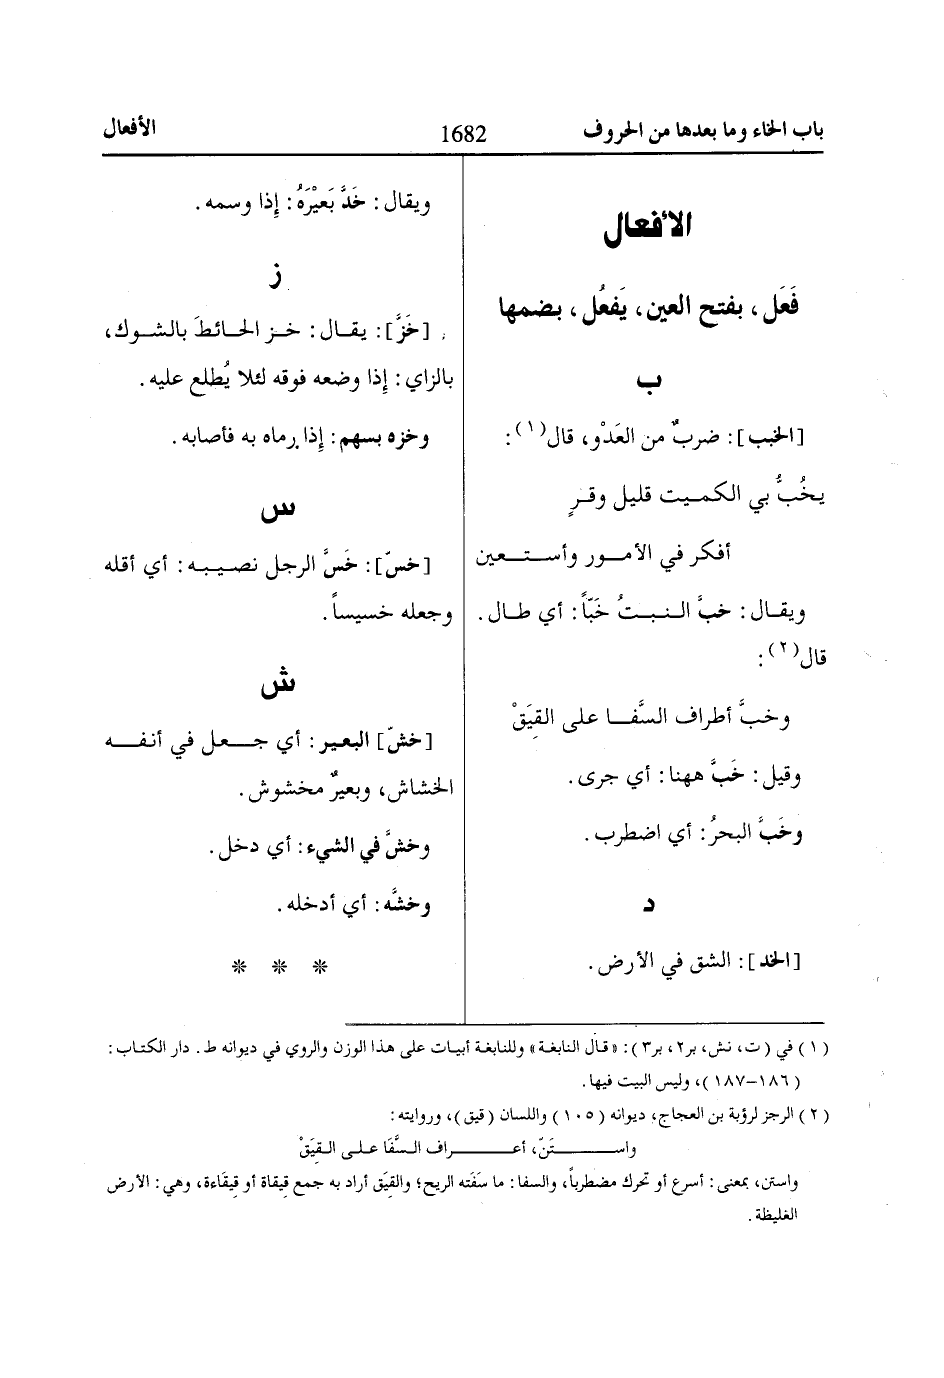 باب الخاء وما بعدها من الحروف
1682
الأفعال
الأفعال
فَعَل، بفتح العين، يَفعُل، بضمها
ب
[الخبب]: ضربٌ من العَدْو، قال(١):
يخُبُّ بي الكمـيت قليل وقـرٍ
أفكر في الأمـور وأسـتـعين
ويقـال: خبَّ الـنـبـتُ خَبّاً: أي طال.
قال(٢):
وخبَّ أطراف السَّفـا على القِيَقْ
وقيل: خَبَّ ههنا: أي جرى.
وخَبَّ البحرُ: أي اضطرب.
د
[الخد]: الشق في الأرض.
ويقال: خَدَّ بَعيْرَهُ: إذا وسمه.
ز
[خَزَّ]: يقـال: خـز الحـائطَ بالشـوك،
بالزاي: إذا وضعه فوقه لئلا يُطلع عليه.
وخزه بسهم: إذا رماه به فأصابه.
س
[خسّ]: خَسَّ الرجل نصـيـبـه: أي أقله
وجعله خسيساً.
ش
[خشّ] البعير: أي جـعـل في أنفـه
الخشاش، وبعيرٌ مخشوش.
وخشَّ في الشيء: أي دخل.
وخشَّه: أي أدخله.
* * *
(١) في (ت، نش، بر٢، بر٣): «قـال النابغة» وللنابغة أبيات على هذا الوزن والروي في ديوانه ط. دار الكتـاب:
(١٨٦-١٨٧)، وليس البيت فيها.
(٢) الرجز لرؤبة بن العجاج، ديوانه (١٠٥) واللسان (قيق)، وروايته:
واسـتَنّ، أعـراف السَّفَا عـلـى القِيَقْ
واستن، بمعنى: أسرع أو تحرك مضطرباً، والسفا: ما سَفَته الريح؛ والقِيَق أراد به جمع قِيقاة أو قِيقَاءة، وهي: الأرض
الغليظة.